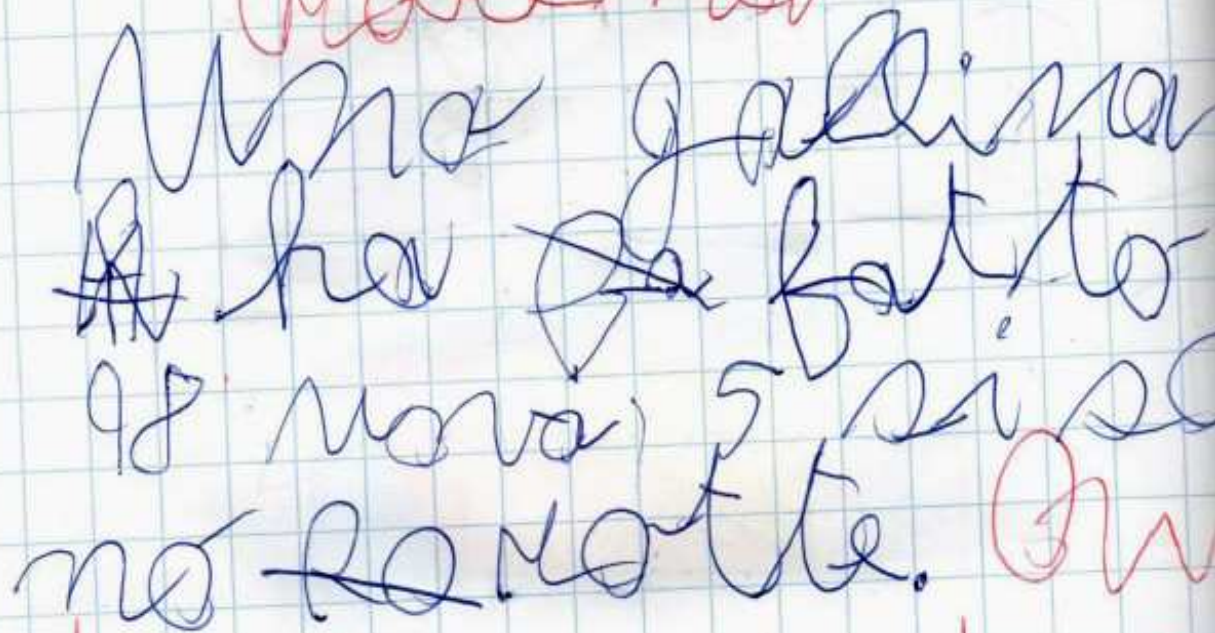 Una gallina
ha fatto
98 uova, 5 si so
no rotte. Qu